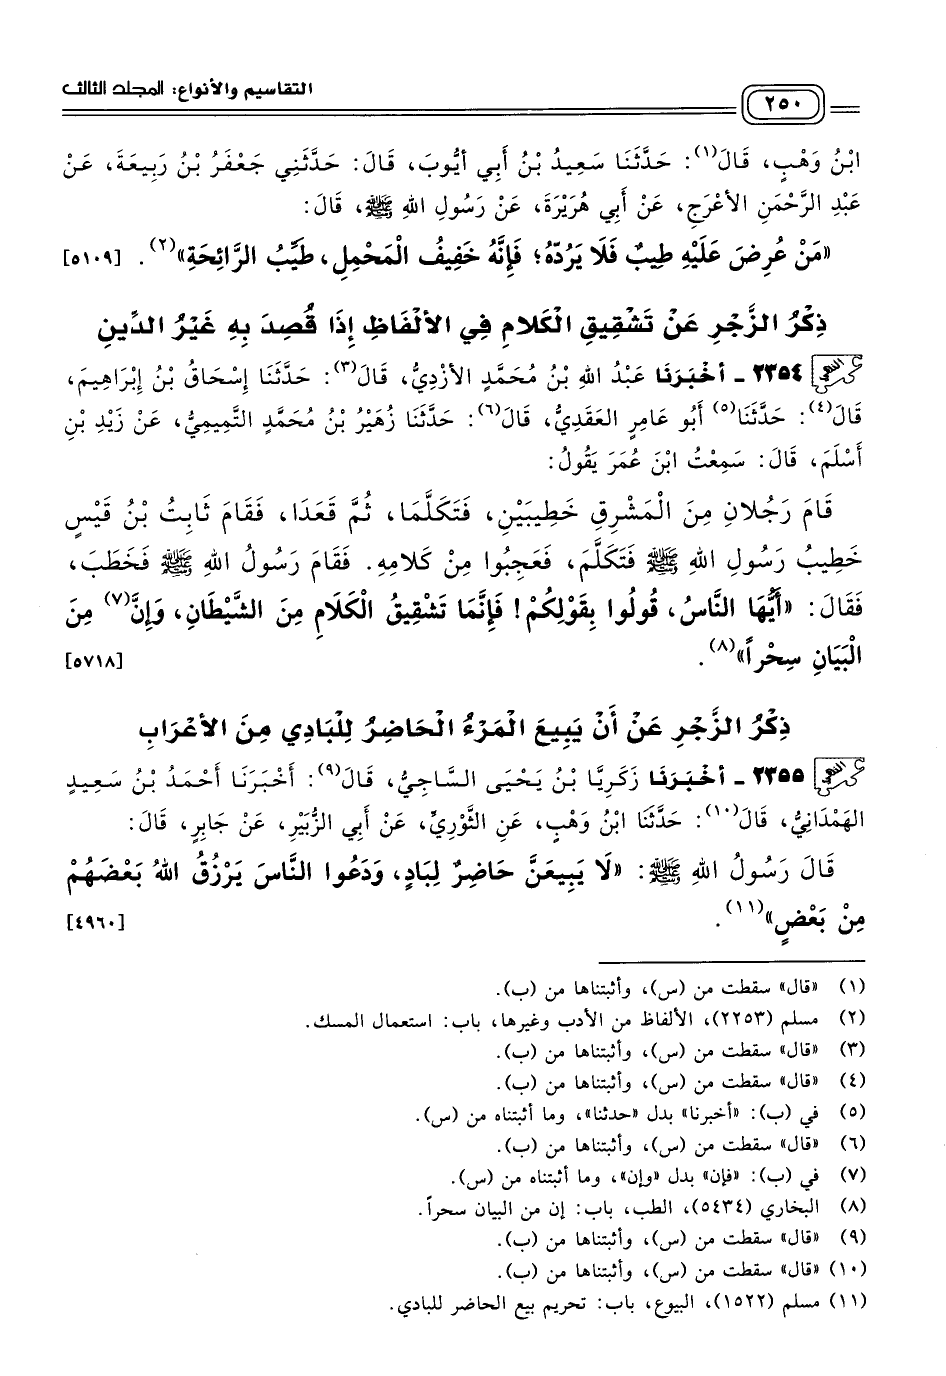 التقاسيم والأنواع: المجلد الثالث
٢٥٠
ابْنُ وَهْبٍ، قَالَ(١): حَدَّثَنَا سَعِيدُ بْنُ أَبِي أَيُّوبَ، قَالَ: حَدَّثَنِي جَعْفَرُ بْنُ رَبِيعَةَ، عَنْ
عَبْدِ الرَّحْمَنِ الأَعْرَجِ، عَنْ أَبِي هُرَيْرَةَ، عَنْ رَسُولِ اللهِ ﷺ، قَالَ:
«مَنْ عُرِضَ عَلَيْهِ طِيبٌ فَلَا يَرُدَّهُ؛ فَإِنَّهُ خَفِيفُ الْمَحْمِلِ، طَيِّبُ الرَّائِحَةِ»(٢). [٥١٠٩]
ذِكْرُ الزَّجْرِ عَنْ تَشْقِيقِ الْكَلامِ فِي الأَلْفَاظِ إِذَا قُصِدَ بِهِ غَيْرُ الدِّينِ
٢٣٥٤ ـ أَخْبَرَنَا عَبْدُ اللهِ بْنُ مُحَمَّدٍ الأَزْدِيُّ، قَالَ(٣): حَدَّثَنَا إِسْحَاقُ بْنُ إِبْرَاهِيمَ،
قَالَ(٤): حَدَّثَنَا(٥) أَبُو عَامِرٍ العَقَدِيُّ، قَالَ(٦): حَدَّثَنَا زُهَيْرُ بْنُ مُحَمَّدٍ التَّمِيمِيُّ، عَنْ زَيْدِ بْنِ
أَسْلَمَ، قَالَ: سَمِعْتُ ابْنَ عُمَرَ يَقُولُ:
قَامَ رَجُلانِ مِنَ الْمَشْرِقِ خَطِيبَيْنِ، فَتَكَلَّمَا، ثُمَّ قَعَدَا، فَقَامَ ثَابِتُ بْنُ قَيْسٍ
خَطِيبُ رَسُولِ اللهِ ﷺ فَتَكَلَّمَ، فَعَجِبُوا مِنْ كَلامِهِ. فَقَامَ رَسُولُ اللهِ ﷺ فَخَطَبَ،
فَقَالَ: «أَيُّهَا النَّاسُ، قُولُوا بِقَوْلِكُمْ! فَإِنَّمَا تَشْقِيقُ الْكَلَامِ مِنَ الشَّيْطَانِ، وَإِنَّ(٧) مِنَ
الْبَيَانِ سِحْراً»(٨). [٥٧١٨]
ذِكْرُ الزَّجْرِ عَنْ أَنْ يَبِيعَ الْمَرْءُ الْحَاضِرُ لِلْبَادِي مِنَ الأَعْرَابِ
٢٣٥٥ ـ أَخْبَرَنَا زَكَرِيَّا بْنُ يَحْيَى السَّاجِيُّ، قَالَ(٩): أَخْبَرَنَا أَحْمَدُ بْنُ سَعِيدٍ
الهَمْدَانِيُّ، قَالَ(١٠): حَدَّثَنَا ابْنُ وَهْبٍ، عَنِ الثَّوْرِيِّ، عَنْ أَبِي الزُّبَيْرِ، عَنْ جَابِرٍ، قَالَ:
قَالَ رَسُولُ اللهِ ﷺ: «لَا يَبِيعَنَّ حَاضِرٌ لِبَادٍ، وَدَعُوا النَّاسَ يَرْزُقُ اللهُ بَعْضَهُمْ
مِنْ بَعْضٍ»(١١). [٤٩٦٠]
(١) «قال» سقطت من (س)، وأثبتناها من (ب).
(٢) مسلم (٢٢٥٣)، الألفاظ من الأدب وغيرها، باب: استعمال المسك.
(٣) «قال» سقطت من (س)، وأثبتناها من (ب).
(٤) «قال» سقطت من (س)، وأثبتناها من (ب).
(٥) في (ب): «أخبرنا» بدل «حدثنا»، وما أثبتناه من (س).
(٦) «قال» سقطت من (س)، وأثبتناها من (ب).
(٧) في (ب): «فإن» بدل «وإن»، وما أثبتناه من (س).
(٨) البخاري (٥٤٣٤)، الطب، باب: إن من البيان سحراً.
(٩) «قال» سقطت من (س)، وأثبتناها من (ب).
(١٠) «قال» سقطت من (س)، وأثبتناها من (ب).
(١١) مسلم (١٥٢٢)، البيوع، باب: تحريم بيع الحاضر للبادي.